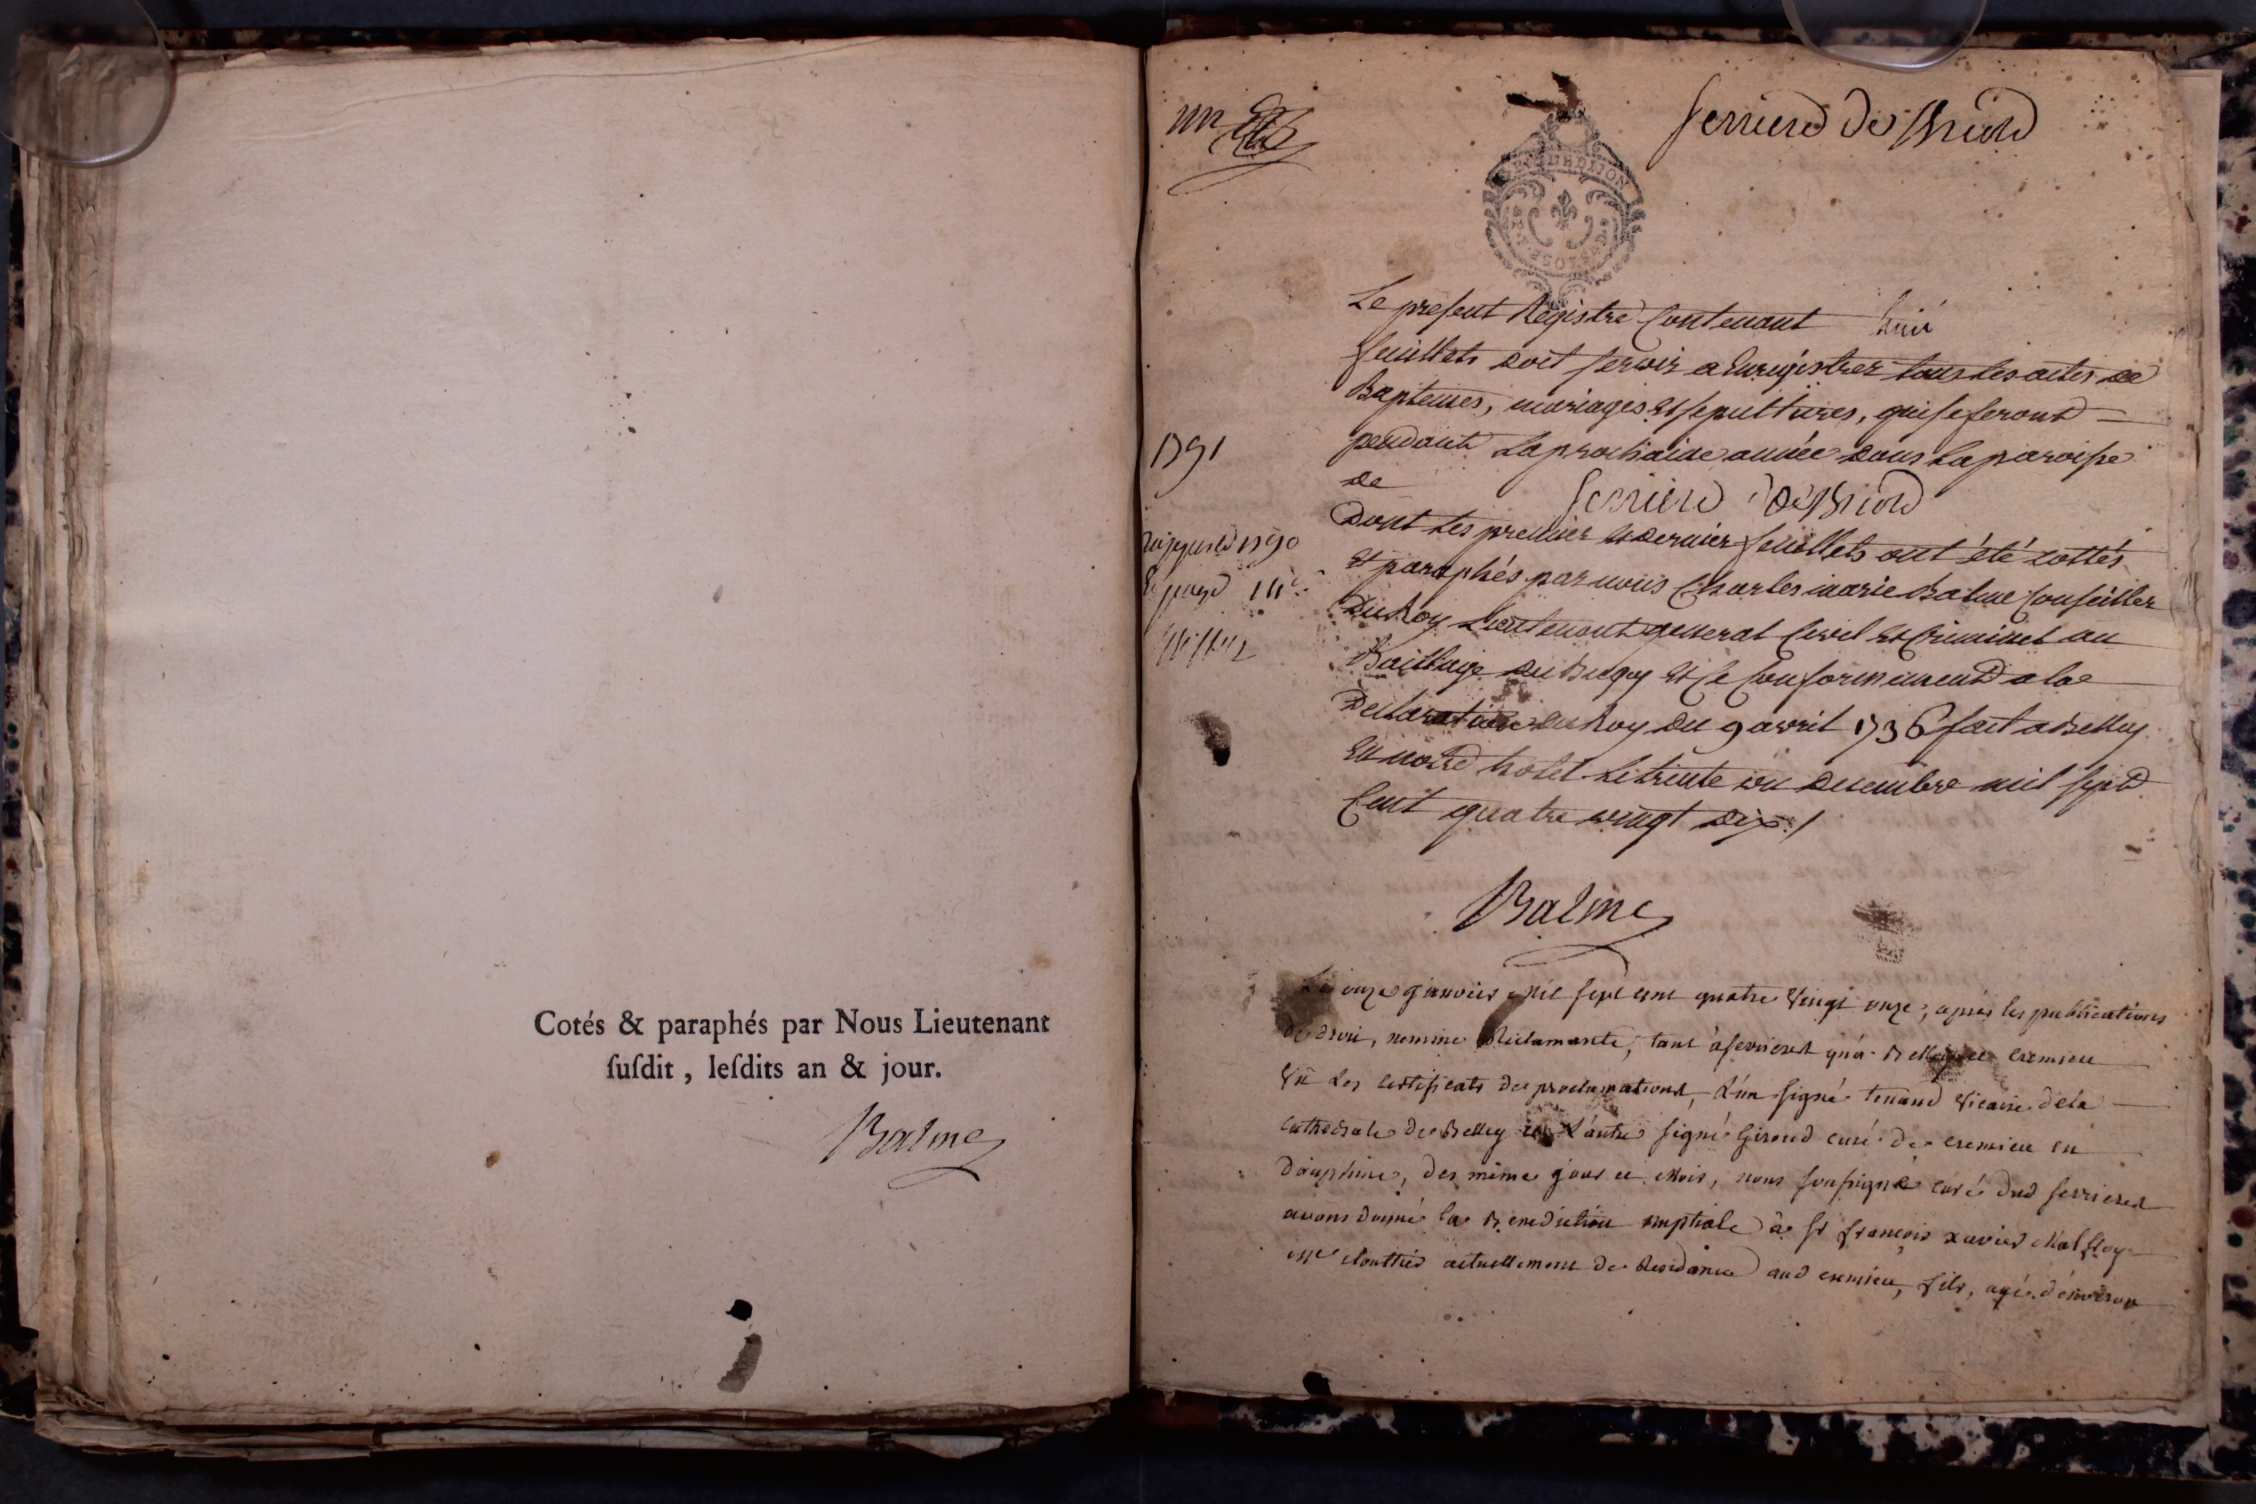 Cotés & paraphés par Nous Lieutenant
ſuſdit, leſdits an & jour.
Balme
un
DE DIJON
Le preſent Registre Contenant huit
feuillets doit ſervir a Enregistrer tous les actes de
Baptemes, mariages et ſepultures, qui ſe feront
pendant la prochaine année dans la paroiſſe
de
Dont les premier et dernier feuillets ont été cottés
et paraphés par nous Charles marie Balme Conſeiller
Du Roy Lieutenant general Civil et Criminel au
Bailliage du Bugey et ce Conformement a la
Declaration du Roy du 9 avril 1736 fait a Belley
en notre hotel le trente un Decembre mil ſept
Cent quatre vingt dix /
1791
Balme
Le onze janvier mil ſept cent quatre vingt onze, après les publications
de droit, nemine Reclamante, tant à ferrieres qu'à Belley et cremieu
vû les certificats de proclamations, l'un ſigné tenand vicaire de la
cathedrale de Belley et l'autre ſigné Giroud curé de cremieu en
dauphiné, des même jour et mois, nous ſouſsigné curé dud ferrieres
avons donné la Benediction nuptiale à ſr françois xavier
actuellement de Residance aud cremieu, fils, agé d'environ